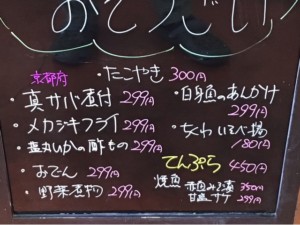 おそうざい
京都府
・たこやき 300円
・真サバ煮付 299円
・メカジキフライ 299円
いかの酢もの 299円
・おでん 299円
・野菜煮物 299円
・白身魚のあんかけ
299円
ちくわいそべ揚
180円
てんぷら 450円
焼魚
赤魚みそ漬 350円
甘塩サケ 299円